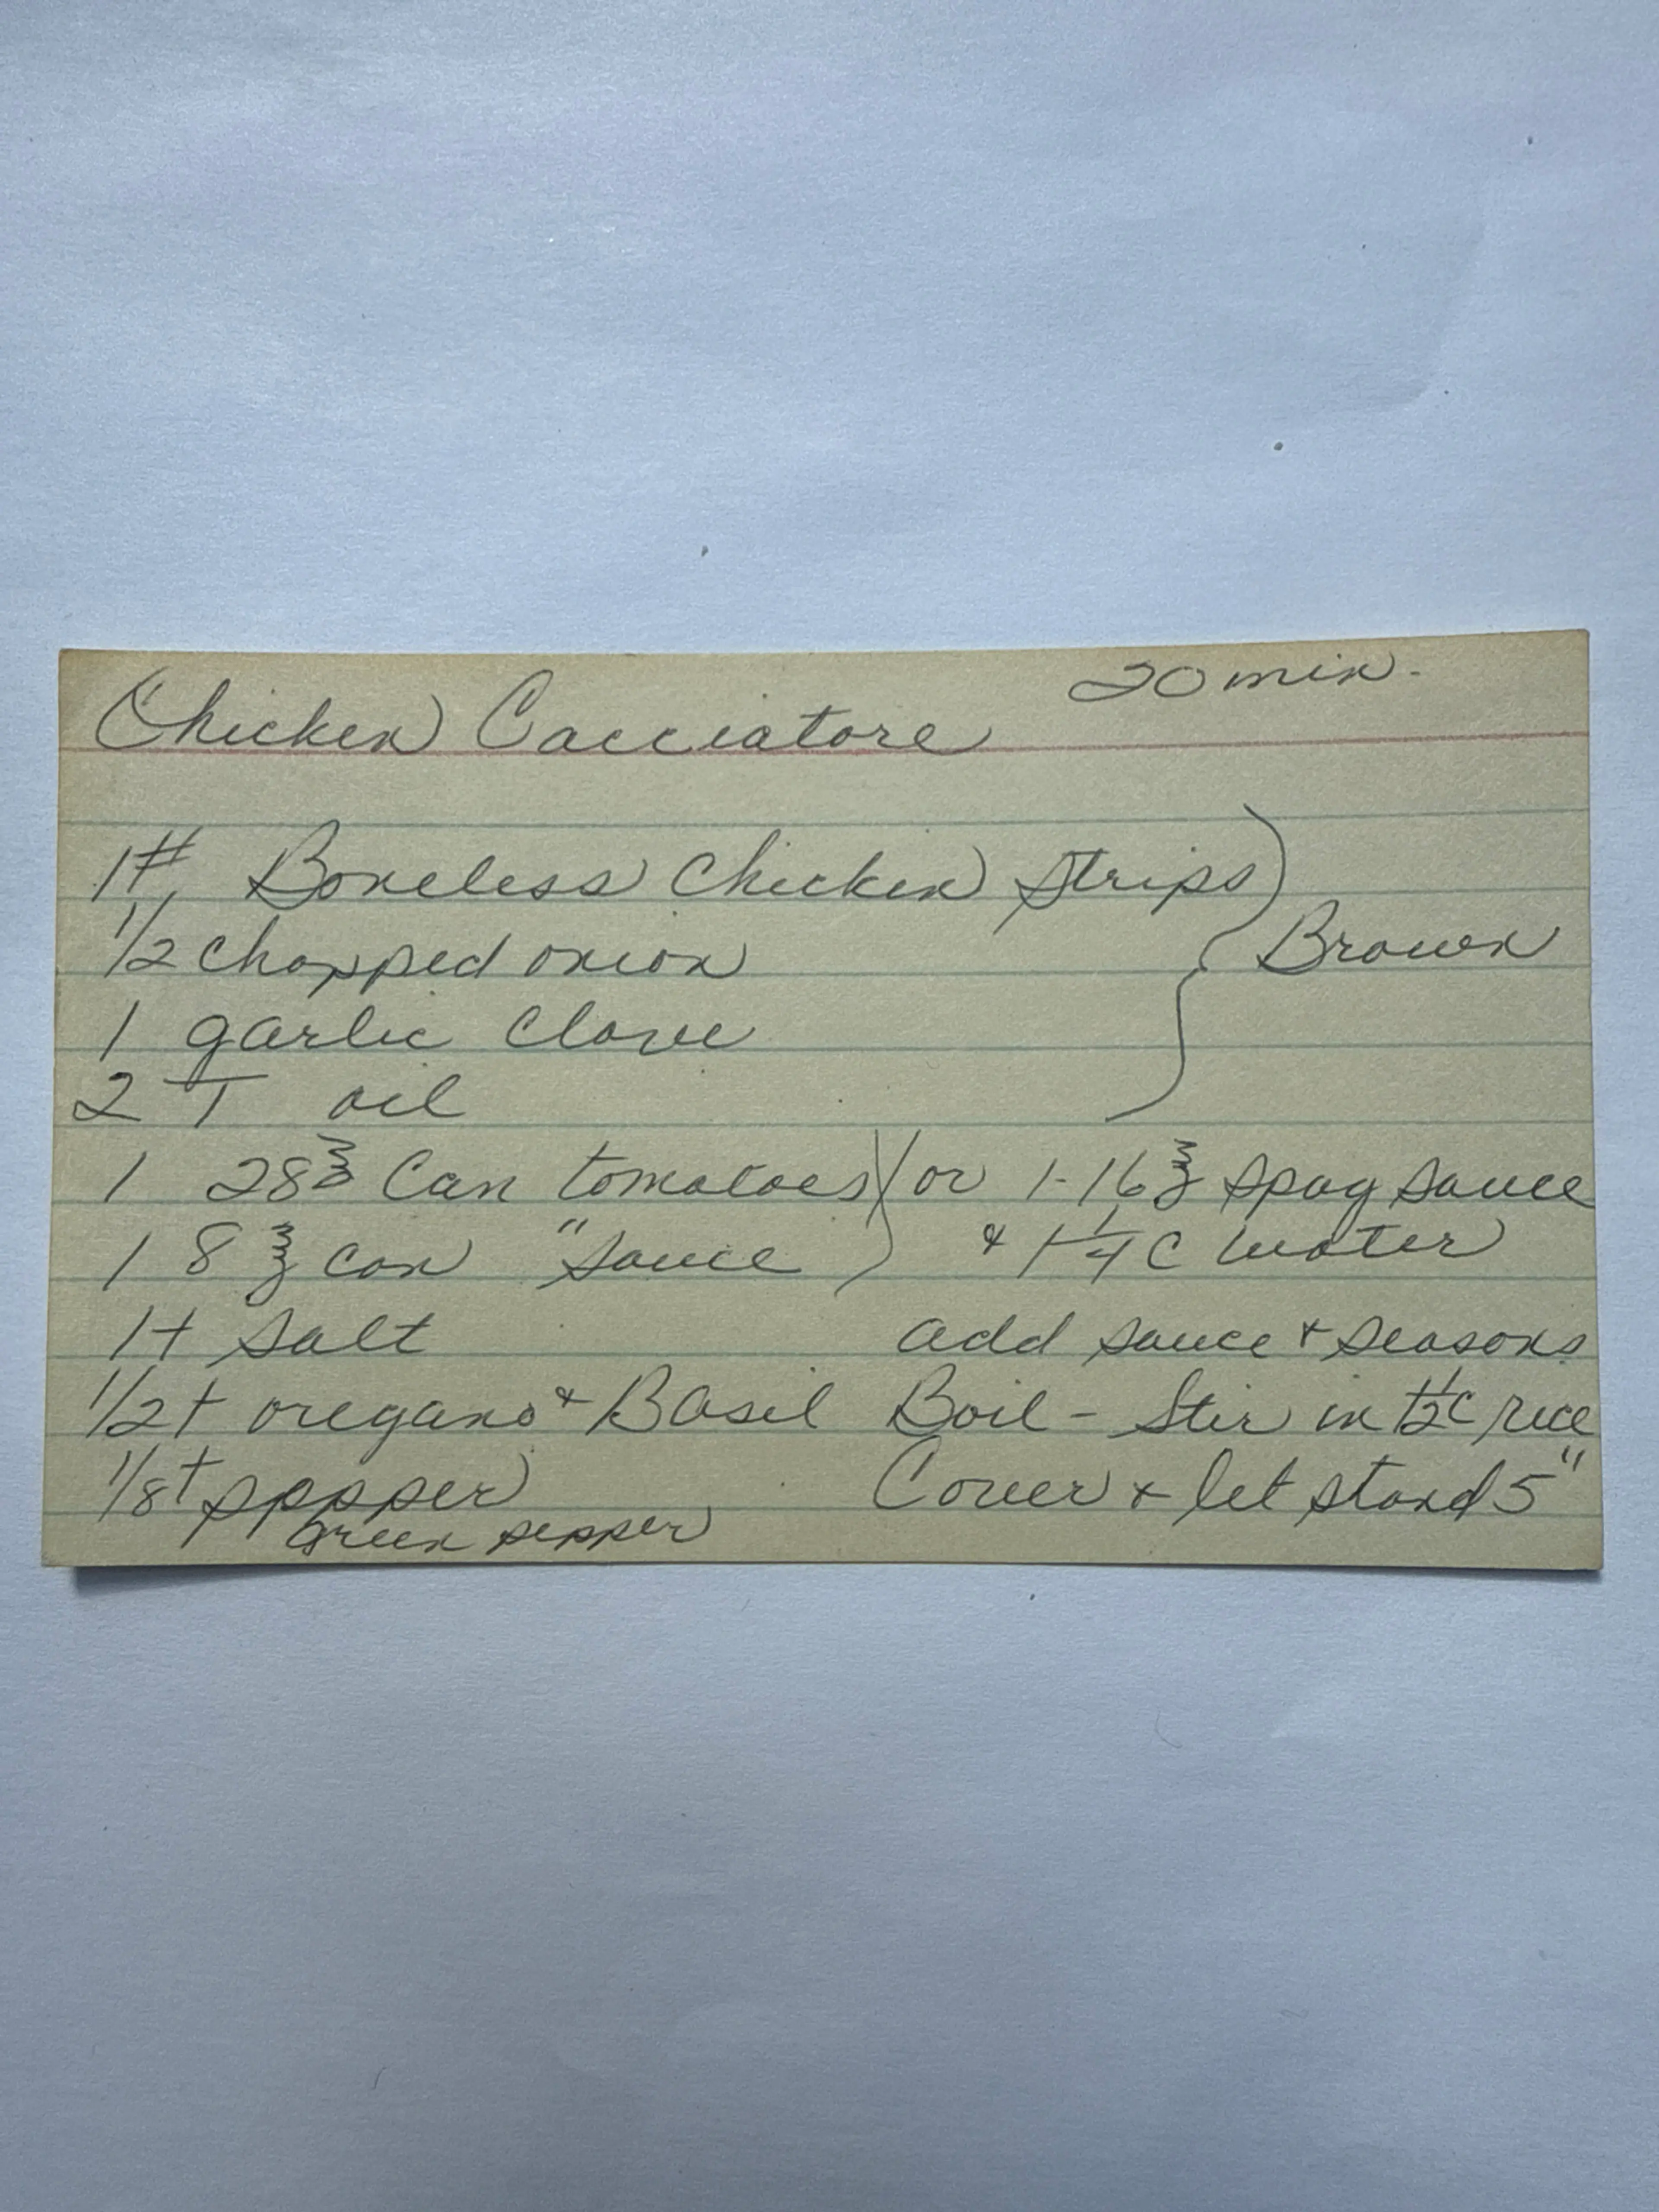 Chicken Cacciatore 20 min.
1# Boneless Chicken Strips
1/2 chopped onion } Brown
1 garlic clove
2 T oil
1 28℥ Can tomatoes ) or 1-16℥ spag sauce
1 8℥ can " sauce ) & 1 1/4 C water
1 t salt add sauce & seasons
1/2 t oregano & Basil Boil - Stir in 1 1/2 C rice
1/8 t pppper Cover & let stand 5"
Green pepper